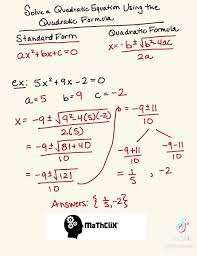 Solve a Quadratic Equation Using the
Quadratic Formula
Standard Form
ax²+bx+c=0
Quadratic Formula
x=-b±√b²-4ac
2a
ex: 5x²+9x-2=0
a=5 b=9 c=-2
x=-9±√9²-4(5)(-2)
2(5)
=-9±√81+40
10
=-9±√121
10
=-9±11
10
-9+11
10
1
5
-9-11
10
, -2
Answers: {1/5,-2}
MATHCLIX